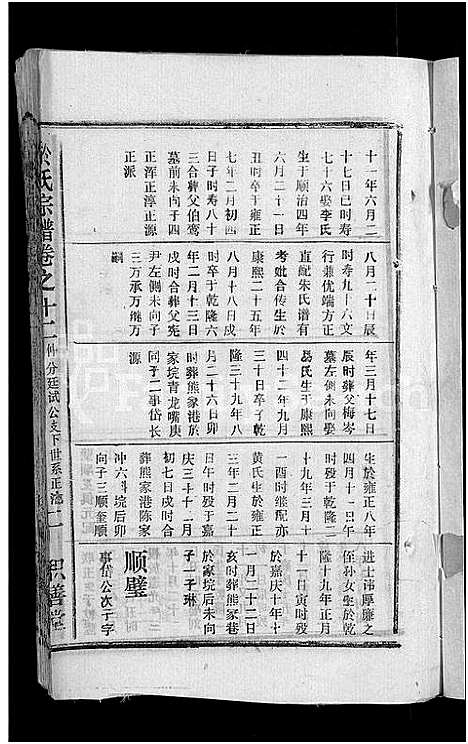 十一年六月二
十七日巳时寿
七十六娶李氏
生于顺治四年
六月二十一日
丑时卒于雍正
七年二月初四
日子时寿八十
三合葬父伯鸾
墓前未向子四
正浑正淳正源
正派
八月二十日辰
时寿九十六文
行兼优端方正
直配朱氏谱有
考妣合传生於
康熙二十五年
八月十八日戌
时卒于乾隆六
年二月十三日
戌时合葬父宪
尹左侧未向子
三万承万继万
嗣
年三月十七日
辰时葬父梅岑
墓左侧未向娶
易氏生于康熙
四十二年九月
三十日卒子乾
隆三十九年八
月二十六日卯
时葬熊家港於
家垸青龙嘴庚
向子二事岱长
源
生於雍正八年
四月十一日午
时殁于乾隆二
十九年三月十
一酉时继配亦
黄氏生於雍正
三年二月二十
日午时殁于嘉
庆三十十一月
初七日戌时合
葬熊家港陈家
冲六斗垸后卯
向子三顺奎顺
璧
进士沛厚廉之
侄孙女生於乾
隆十九年正月
十一日寅时殁
於嘉庆十年十
一月二十二日
亥时葬熊家巷
於家垸后未向
子一子琳
顺璧
事岱公次子字
於氏宗谱卷之十二
仲分廷试公支下世系正濂
积善堂